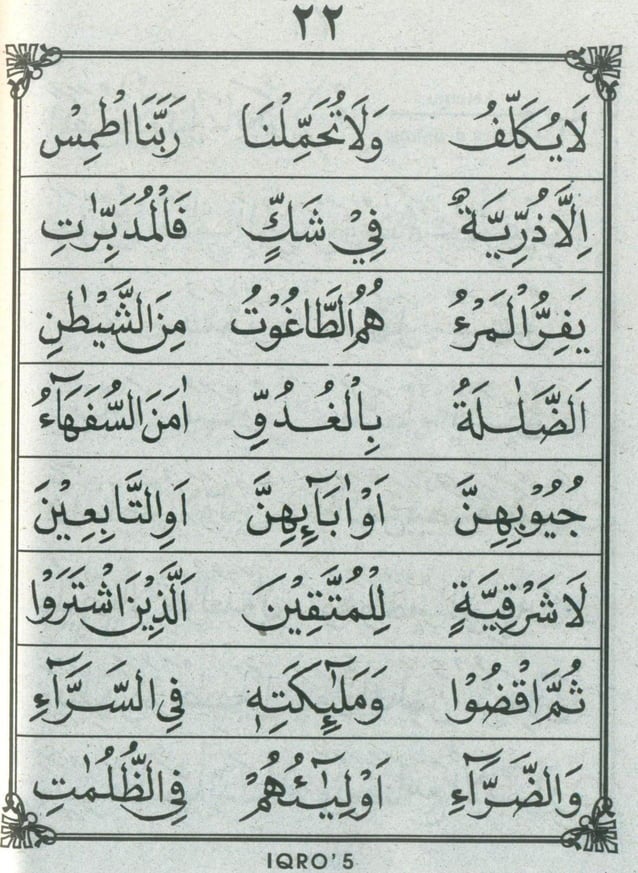 ٢٢
لَا يُكَلِّفُ وَلَا تُحَمِّلْنَا رَبَّنَا اطْمِسْ
اِلَّا ذُرِّيَّةٌ فِيْ شَكٍّ فَالْمُدَبِّرٰتِ
يَفِرُّ الْمَرْءُ هُمُ الطَّاغُوْتُ مِنَ الشَّيْطٰنِ
اَلضَّلٰلَةُ بِالْغُدُوِّ اٰمَنَ السُّفَهَآءُ
جُيُوْبِهِنَّ اَوْ اٰبَآئِهِنَّ اَوِ التَّابِعِيْنَ
لَا شَرْقِيَّةٍ لِلْمُتَّقِيْنَ اَلَّذِيْنَ اشْتَرَوْا
ثُمَّ اقْضُوْا وَمَلٰٓئِكَتِهٖ فِى السَّرَّآءِ
وَالضَّرَّآءِ اَوْلِيٰٓئُهُمْ فِى الظُّلُمٰتِ
IQRO'5